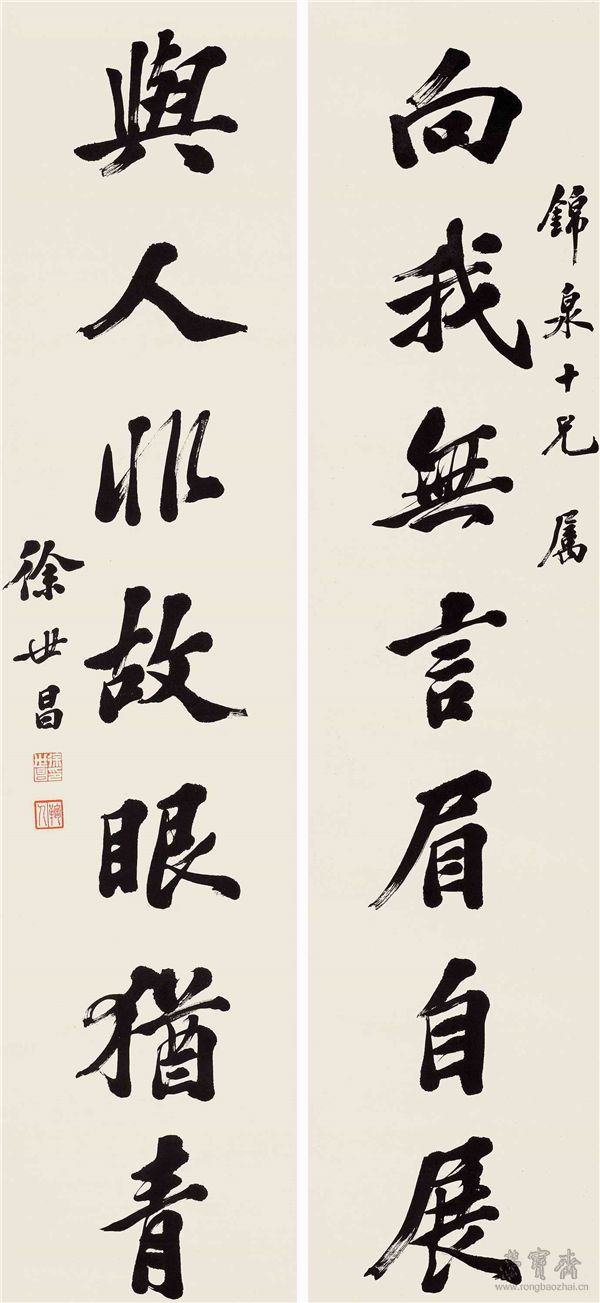 錦泉十兄属
向我無言眉自展
與人非故眼猶青
徐世昌
榮寳齋
www.rongbaozhai.cn